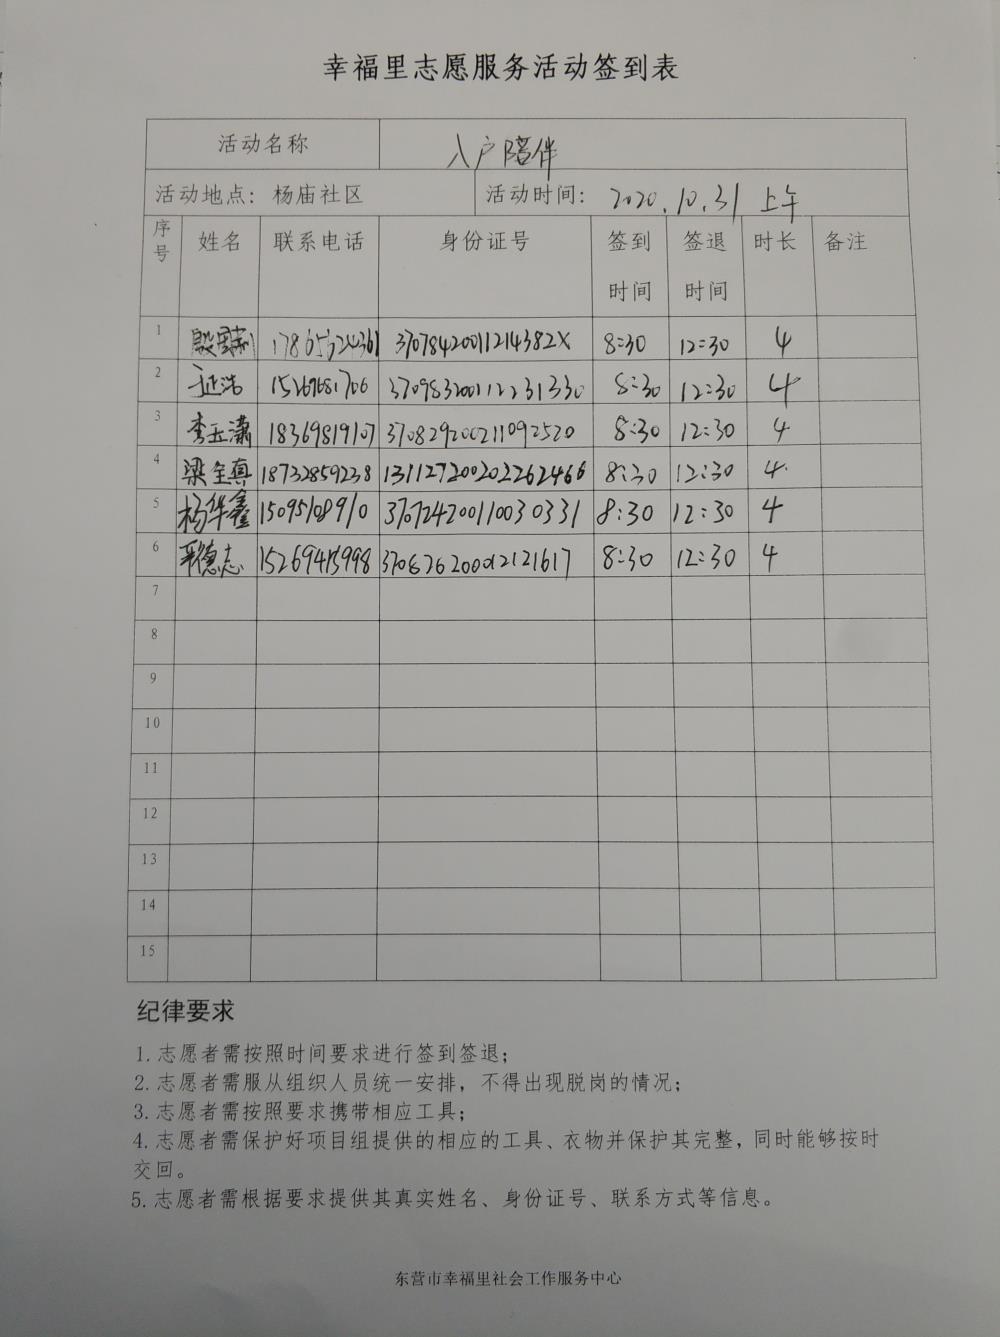 幸福里志愿服务活动签到表
活动名称 入户陪伴
活动地点：杨庙社区 活动时间：2020.10.31 上午
序号 姓名 联系电话 身份证号 签到时间 签退时间 时长 备注
1 殷 17865624361 37078420011214382X 8:30 12:30 4
2 浩 15269681706 370983200112231330 8:30 12:30 4
3 李玉潇 18369819107 370829200211092520 8:30 12:30 4
4 梁全真 18732859238 131127200202262466 8:30 12:30 4
5 杨华鑫 15095108910 370724200110030331 8:30 12:30 4
6 德志 8:30 12:30 4
7
8
9
10
11
12
13
14
15
纪律要求
1.志愿者需按照时间要求进行签到签退；
2.志愿者需服从组织人员统一安排，不得出现脱岗的情况；
3.志愿者需按照要求携带相应工具；
4.志愿者需保护好项目组提供的相应的工具、衣物并保护其完整，同时能够按时
交回。
5.志愿者需根据要求提供其真实姓名、身份证号、联系方式等信息。
东营市幸福里社会工作服务中心